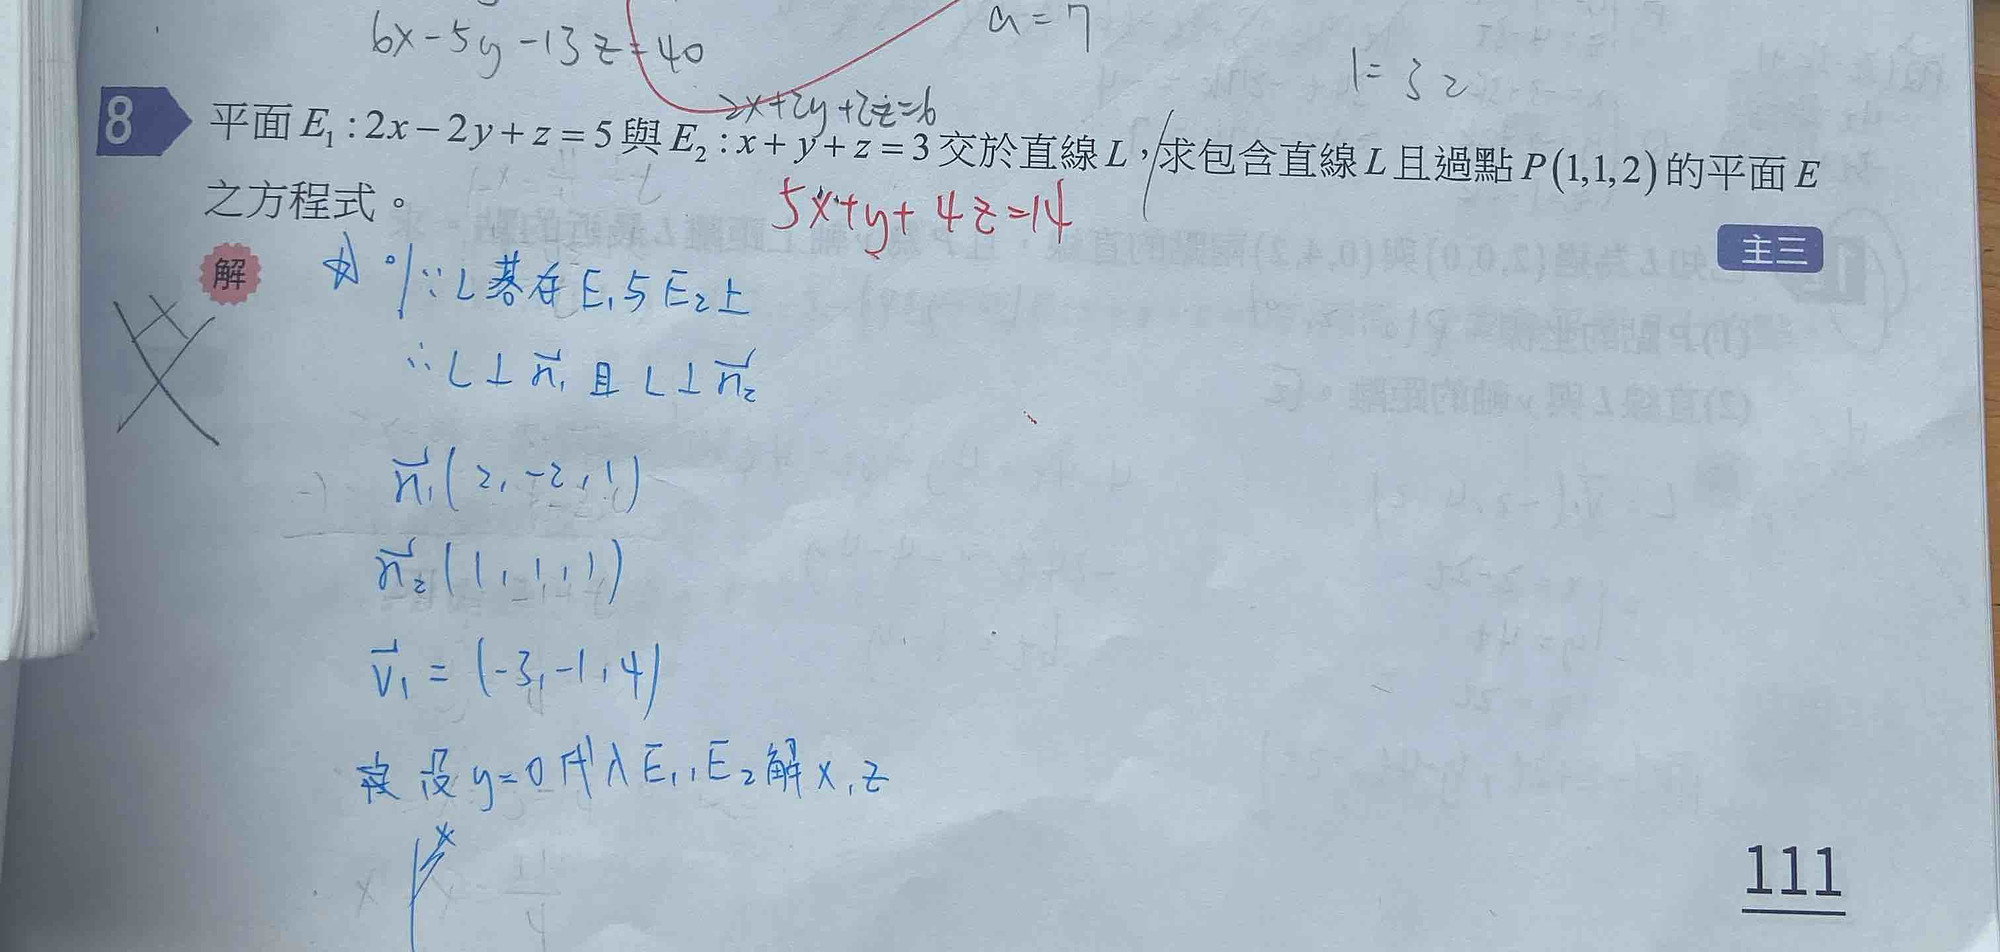 6x-5y-13z=40
a=7
1=3z
2x+2y+2z=6
8 平面E₁:2x-2y+z=5與E₂:x+y+z=3交於直線L,求包含直線L且過點P(1,1,2)的平面E
之方程式。
5x+y+4z=14
主三
解
∵L落在E₁与E₂上
∴L⊥n₁且L⊥n₂
n₁(2,-2,1)
n₂(1,1,1)
v₁=(-3,-1,4)
設y=0代入E₁,E₂解x,z
111